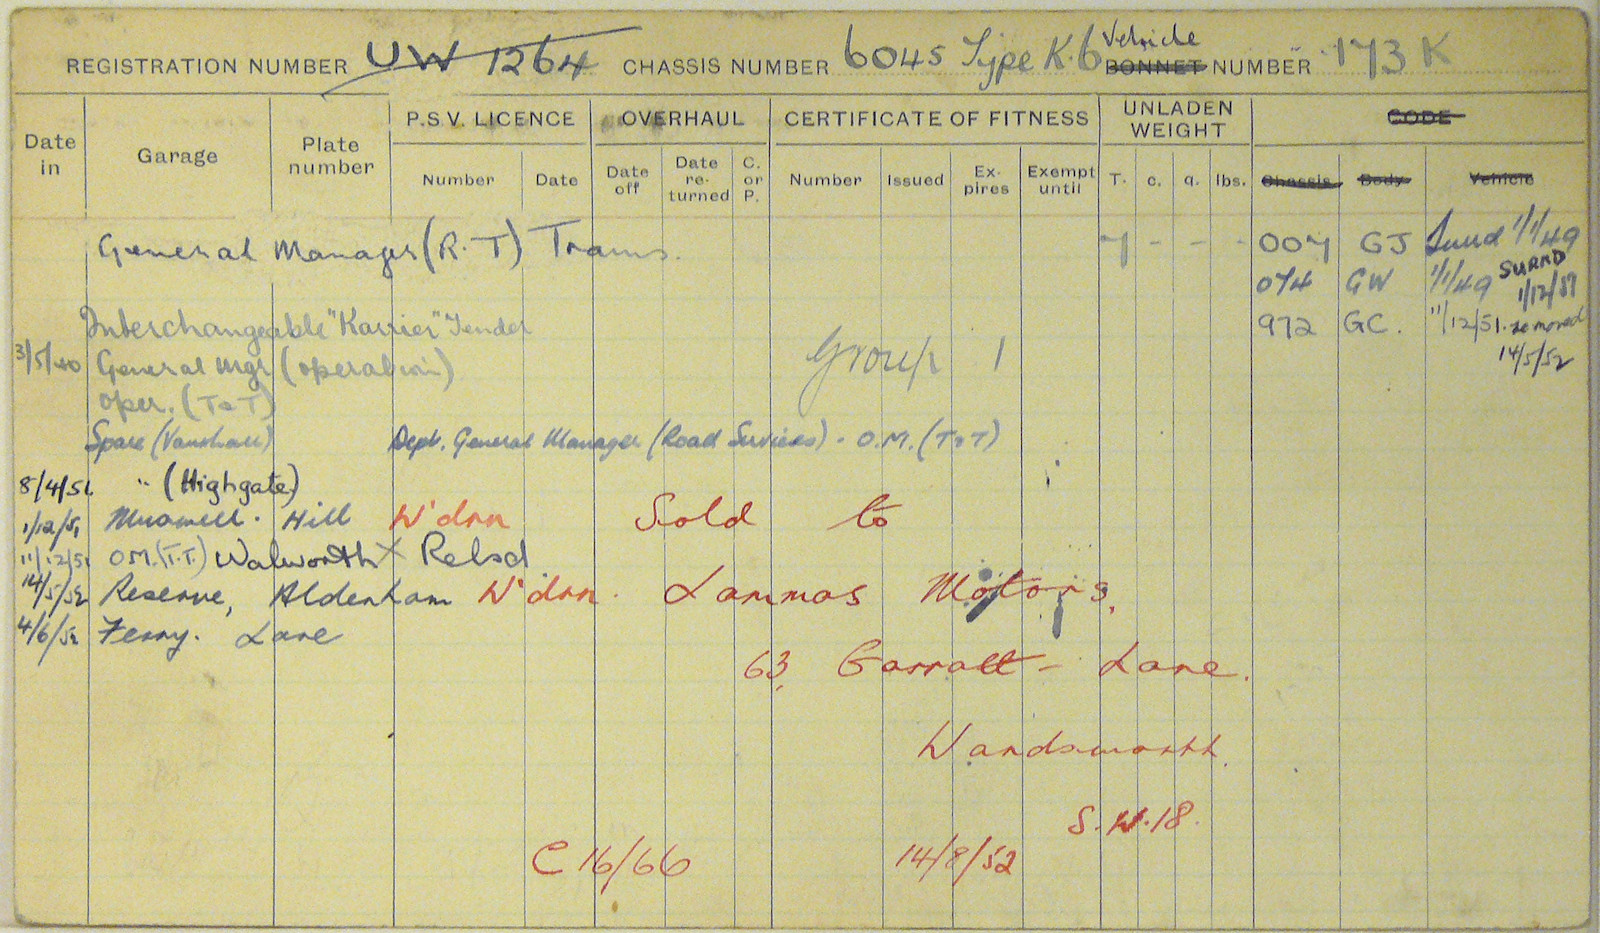 REGISTRATION NUMBER UW 1264 CHASSIS NUMBER 6045 Type K.6 Vehicle BONNET NUMBER 173 K
Date in Garage Plate number P.S.V. LICENCE OVERHAUL CERTIFICATE OF FITNESS UNLADEN WEIGHT CODE
Number Date Date off Date re-turned C. or P. Number Issued Ex-pires Exempt until T. c. q. lbs. Chassis Body Vehicle
General Manager (R.T) Trams. 7 - - - 007 GJ Surrd 1/1/49
074 GW 1/1/49 SURRD 1/12/51
Interchangeable "Karrier" Tender 972 GC. 11/12/51. removed 14/5/52
3/5/40 General Mgr (operation) Group 1
oper. (T&T)
Spare (Vauxhall) Dept. General Manager (Road Services) - O.M. (T&T)
8/4/51 " (Highgate)
1/12/51 Muswell Hill W'drn Sold to
11/12/51 O.M. (T.T.) Walworth X Relsd
14/5/52 Reserve, Aldenham W'drn. Lammas Motors,
4/6/52 Ferry. Lane
63, Garratt - Lane.
Wandsworth.
S.W.18.
C 16/66 14/8/52